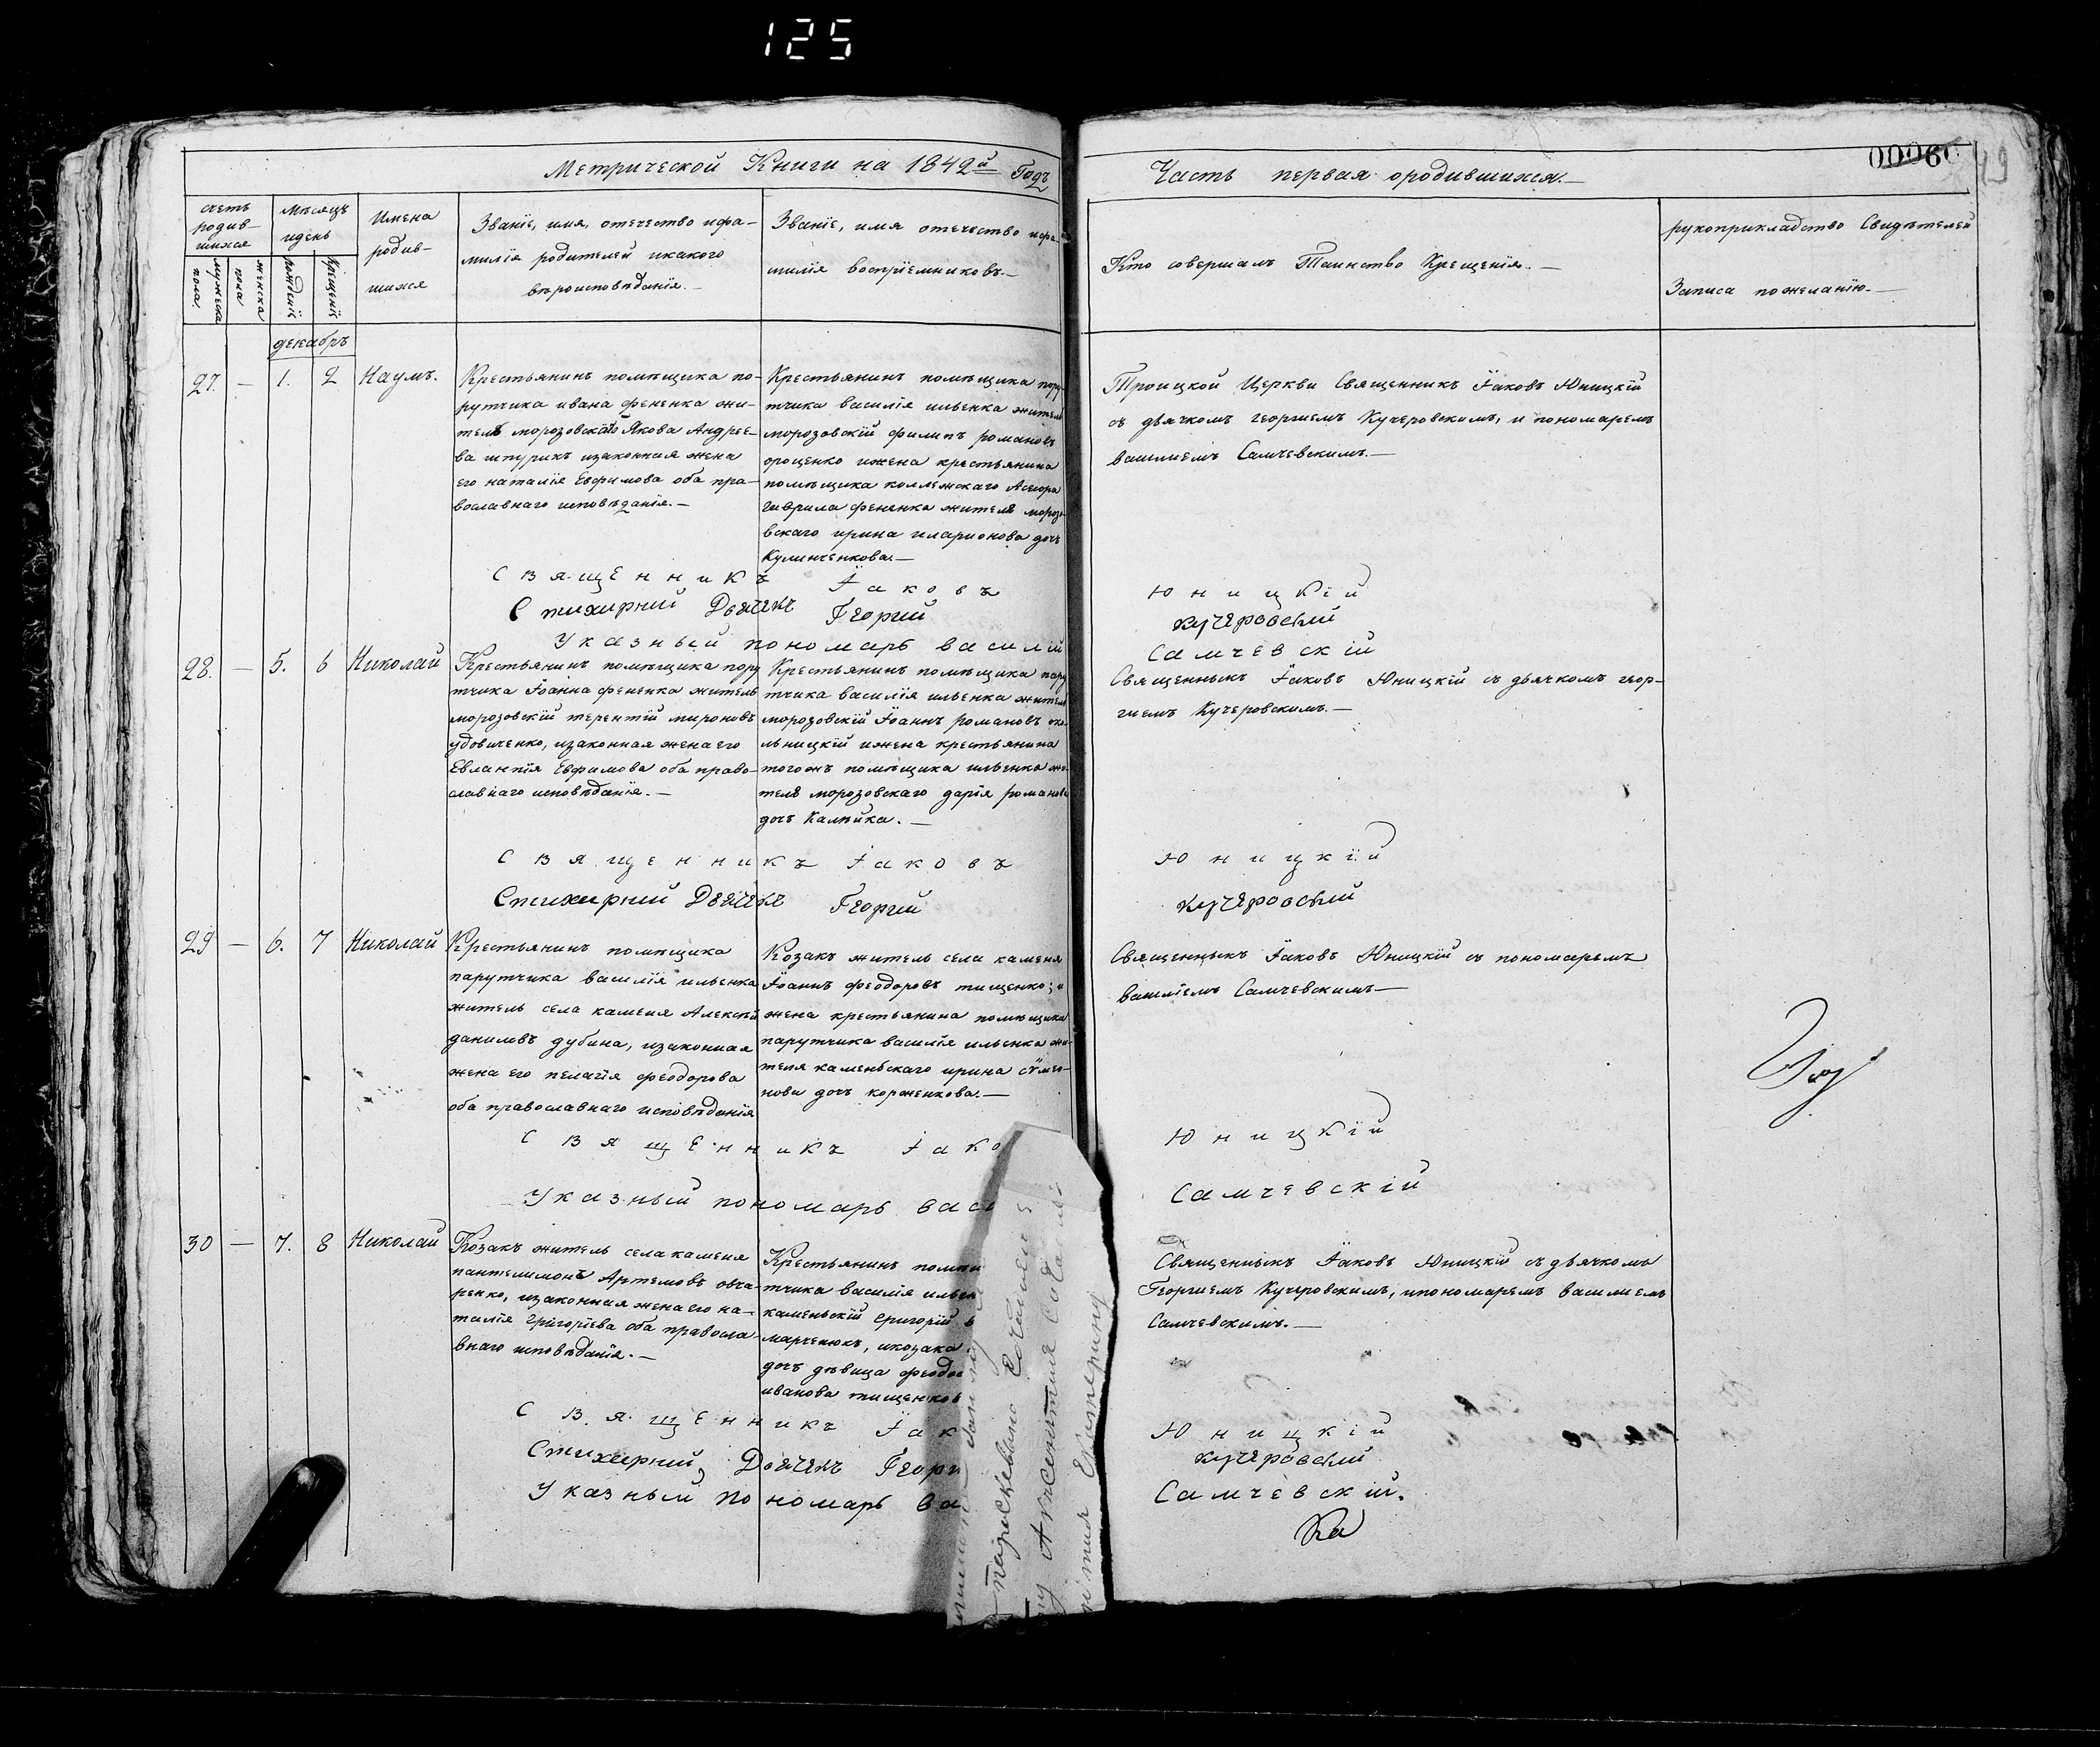 125
Метрической Книги на 1842й Годъ
Часть первая ородившихся.—
00096
счетъ родив-шихся
мужеска пола.
женска пола
мѣсяцъ идень
рожденіе
крещеніе
Имена родив-шихся
Званіе, имя, отечество ифа-
милія родителей икакого
вѣроисповѣданія.—
Званіе, имя отечество ифа-
милія воспріемниковъ.—
Кто совершалъ Таинство Крещенія.—
рукоприкладство Свидѣтелей
Записа пожеланію.—
декабръ
27. — 1. 2 Наумъ.
Крестьянинъ помѣщика по-
рутчика ивана фененка жи-
тель морозовскій Якова Андрее-
ва шпурикъ изаконная жена
его наталія Евфимова оба пра-
вославнаго исповѣданія.—
Крестьянинъ помѣщика пору-
тчика василія ильенка житель
морозовскій филипъ романовъ
орощенко ижена крестьянина
помѣщика коллежскаго Асесора
гаврила фененка жителя морозо-
вскаго ирина иларионова дочь
Кулинченкова.—
Троицкой Церкви Священникъ Іаковъ Юницкій
съ дьячкомъ георгиемъ Кучеровскимъ, и пономаремъ
василиемъ Самчевскимъ.—
Священникъ Іаковъ Юницкій
Стихирний Дьячекъ Георгий Кучеровский
Указный пономарь василій Самчевскій
28. — 5. 6 Николай
Крестьянинъ помѣщика пору
тчика Іоанна фененка житель
морозовскій терентій мироновъ
удовиченко, изаконная жена его
Евлампія Евфимова оба право-
славнаго исповѣданія.—
Крестьянинъ помѣщика пору
тчика василія ильенка житель
морозовскій Іоаннъ романовъ око-
льницкій ижена крестьянина
тогожъ помѣщика ильенка жи-
теля морозовскаго дарія романова
дочь Калѣйка.—
Священникъ Іаковъ Юницкій съ дьячкомъ геор-
гиемъ Кучеровскимъ.—
Священникъ Іаковъ Юницкій
Стихирний Дьячекъ Георгий Кучеровский
29 — 6. 7 Николай
Крестьянинъ помѣщика
парутчика василія ильенка
житель села каменя Алексѣй
даниловъ дубина, изаконная
жена его пелагія феодорова
оба православнаго исповѣданія
Козакъ житель села каменя
Іоаннъ феодоровъ тищенко; и
жена крестьянина помѣщика
парутчика василія ильенка жи-
теля каменьскаго ирина сѵмео-
нова дочь корженкова.—
Священникъ Іаковъ Юницкій съ пономаремъ
василіемъ Самчевскимъ—
Священникъ Іако Юницкій
Указный пономарь васи Самчевскій
30 — 7. 8 Николай
Козакъ житель села каменя
пантелимонъ Артемовъ овча-
ренко, изаконная жена его на-
талія григоріева оба правосла-
внаго исповѣданія.—
Крестьянинъ помѣщи
тчика василія ильен
каменьскій григорій
марченюкъ, икозака
дочь дѣвица феодо
иванова тищенков
Священникъ Іаковъ Юницкій съ дьячкомъ
Георгиемъ Кучеровскимъ, ипономаремъ василиемъ
Самчевскимъ.—
Священникъ Іак Юницкій
Стихирний Дьячекъ Георги Кучеровский
Указный пономарь ва Самчевскій.
Ка
Параскевы
Екатерину